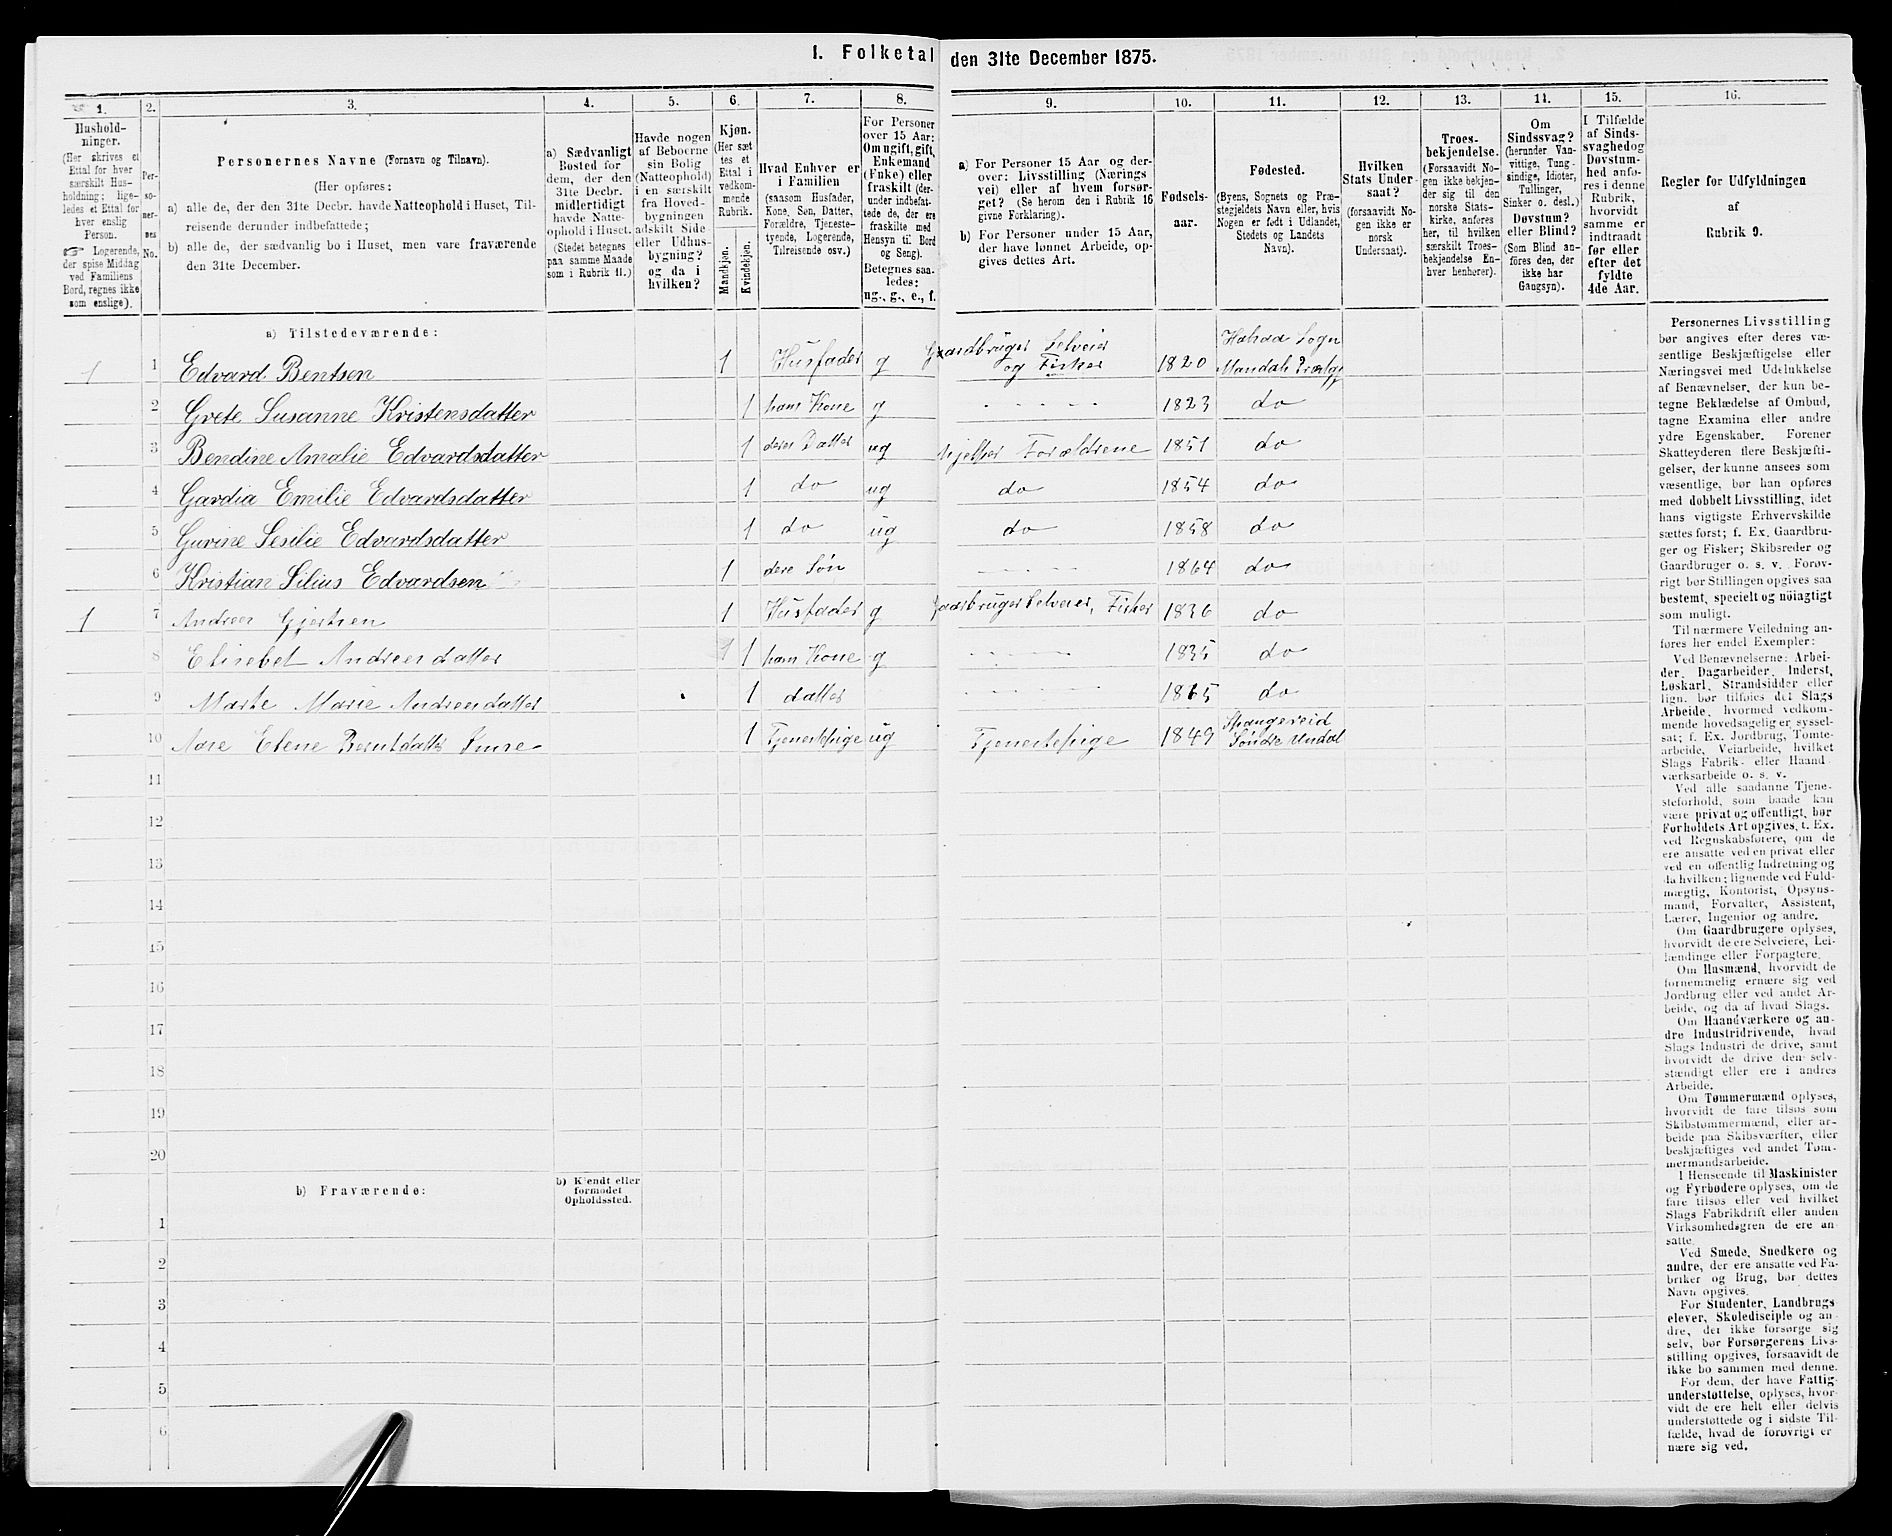 1. Folketal den 31te December 1875.
1.
Hushold-
ninger.
(Her skrives et
Ettal for hver
særskilt Hus-
holdning; lige-
ledes et Ettal for
hver enslig
Person.
Logerende,
der spise Middag
ved Familiens
Bord, regnes ikke
som enslige).
2.
Per-
so-
ner-
nes
No.
3.
Personernes Navne (Fornavn og Tilnavn).
(Her opføres:
a) alle de, der den 31te Decbr. havde Natteophold i Huset, Til-
reisende derunder indbefattede;
b) alle de, der sædvanlig bo i Huset, men vare fraværende
den 31te December.
4.
a) Sædvanligt
Bosted for
dem, der den
31te Decbr.
midlertidigt
havde Natte-
ophold i Huset.
(Stedet betegnes
paa samme Maade
som i Rubrik 11.)
5.
Havde nogen
af Beboerne
sin Bolig
(Natteophold)
i en særskilt
fra Hoved-
bygningen
adskilt Side
eller Udhus-
bygning?
og da i
hvilken?
6.
Kjøn.
(Her sæt-
tes et
Ettal i
vedkom-
mende
Rubrik.
Mandkjøn.
Kvindekjøn.
7.
Hvad Enhver er
i Familien
(saasom Husfader,
Kone, Søn, Datter,
Forældre, Tjeneste-
tyende, Logerende,
Tilreisende osv.)
8.
For Personer
over 15 Aar:
Om ugift, gift,
Enkemand
(Enke) eller
fraskilt (der-
under indbefat-
tede de, der ere
fraskilte med
Hensyn til Bord
og Seng).
Betegnes saa-
ledes:
ug., g., e., f.
9.
a) For Personer 15 Aar og der-
over: Livsstilling (Nærings-
vei) eller af hvem forsør-
get? (Se herom den i Rubrik 16
givne Forklaring).
b) For Personer under 15 Aar,
der have lønnet Arbeide, op-
gives dettes Art.
10.
Fødsels-
aar.
11.
Fødested.
(Byens, Sognets og Præ-
stegjeldets Navn eller, hvis
Nogen er født i Udlandet,
Stedets og Landets
Navn).
12.
Hvilken
Stats Under-
saat?
(forsaavidt No-
gen ikke er
norsk
Undersaat).
13.
Troes-
bekjendelse.
(Forsaavidt No-
gen ikke bekjen-
der sig til den
norske Stats-
kirke, anføres
her, til hvilken
særskilt Troes-
bekjendelse En-
hver henhører).
14.
Om
Sindssvag?
(herunder Van-
vittige, Tung-
sindige, Idioter,
Tullinger,
Sinker o. desl.)
Døvstum?
eller Blind?
(Som Blind an-
føres den, der
ikke har
Gangsyn).
15.
I Tilfælde
af Sinds-
svaghed og
Døvstum-
hed anfø-
res i denne
Rubrik,
hvorvidt
samme er
indtraadt
før eller
efter det
fyldte
4de Aar.
16.
Regler for Udfyldningen
af
Rubrik 9.
a) Tilstedeværende:
1 1 Edvard Bentsen 1 Husfader g Gaardbruger Selveier og Fisker 1820 Halsaa Sogn Mandals
2 Grete Susanne Kristensdatter 1 hans Kone g 1823 do
3 Bendine Amalie Edvardsdatter 1 deres Datter ug hjelper Forældrene 1851 do
4 Gardia Emilie Edvardsdatter 1 do ug do 1854 do
5 Gurine Sesilie Edvardsdatter 1 do ug do 1858 do
6 Kristian Silius Edvardsen 1 dere Søn 1864 do
1 7 Andreas Gjertsen 1 Husfader g Gaardbruger Selveier, Fisker 1836 do
8 Elisebet Andreasdatter 1 hans Kone g 1835 do
9 Marte Marie Andreasdatter 1 datter 1865 do
10 Elene 1 Tjenestepige ug Tjenestepige 1849 Spangereid Søndre Undal
11
12
13
14
15
16
17
18
19
20
b) Fraværende:
b) Kjendt eller
formodet
Opholdssted.
1
2
3
4
5
6
Personernes Livsstilling
bør angives efter deres væ-
sentlige Beskjæftigelse eller
Næringsvei med Udelukkelse
af Benævnelser, der kun be-
tegne Beklædelse af Ombud,
tagne Examina eller andre
ydre Egenskaber. Forener
Skatteyderen flere Beskjæfti-
gelser, der kunne ansees som
væsentlige, bør han opføres
med dobbelt Livsstilling, idet
hans vigtigste Erhvervskilde
sættes først; f. Ex. Gaardbru-
ger og Fisker; Skibsreder og
Gaardbruger o. s. v. Forøv-
rigt bør Stillingen opgives saa
bestemt, specielt og nøiagtigt
som muligt.
Til nærmere Veiledning an-
føres her endel Exempler:
Ved Benævnelserne: Arbei-
der, Dagarbeider, Inderst,
Løskarl, Strandsidder eller
lign. bør tilføies det Slags
Arbeide, hvormed vedkom-
mende hovedsagelig er syssel-
sat; f. Ex. Jordbrug, Tomte-
arbeide, Veiarbeide, hvilket
Slags Fabrik- eller Haand-
værksarbeide o. s. v.
Ved alle saadanne Tjene-
steforhold, som baade kan
være privat og offentligt, bør
Forholdets Art opgives, t. Ex.
ved Regnskabsførere, om de
ere ansatte ved en privat eller
ved en offentlig Indretning og
da hvilken; lignende ved Fuld-
mægtig, Kontorist, Opsyns-
mand, Forvalter, Assistent,
Lærer, Ingeniør og andre.
Om Gaardbrugere oplyses,
hvorvidt de ere Selveiere, Lei-
lændinge eller Forpagtere.
Om Husmænd, hvorvidt de
fornemmelig ernære sig ved
Jordbrug eller ved andet Ar-
beide, og da af hvad Slags.
Om Haandværkere og an-
dre Industridrivende, hvad
Slags Industri de drive, samt
hvorvidt de drive den selv-
stændigt eller ere i andres
Arbeide.
Om Tømmermænd oplyses,
hvorvidt de fare tilsøs som
Skibstømmermænd, eller ar-
beide paa Skibsværfter, eller
beskjæftiges ved andet Tøm-
mermandsarbeide.
I Henseende til Maskinister
og Fyrbødere oplyses, om de
fare tilsøs eller ved hvilket
Slags Fabrikdrift eller anden
Virksomhedsgren de ere an-
satte.
Ved Smede, Snedkere og
andre, der ere ansatte ved Fa-
briker og Brug, bør dettes
Navn opgives.
For Studenter, Landbrugs-
elever, Skoledisciple og an-
dre, der ikke forsørge sig
selv, bør Forsørgerens Livs-
stilling opgives, forsaavidt de
ikke bo sammen med denne.
For dem, der have Fattig-
understøttelse, oplyses, hvor-
vidt de ere helt eller delvis
understøttede og i sidste Til-
fælde, hvad de forøvrigt er-
nære sig ved.